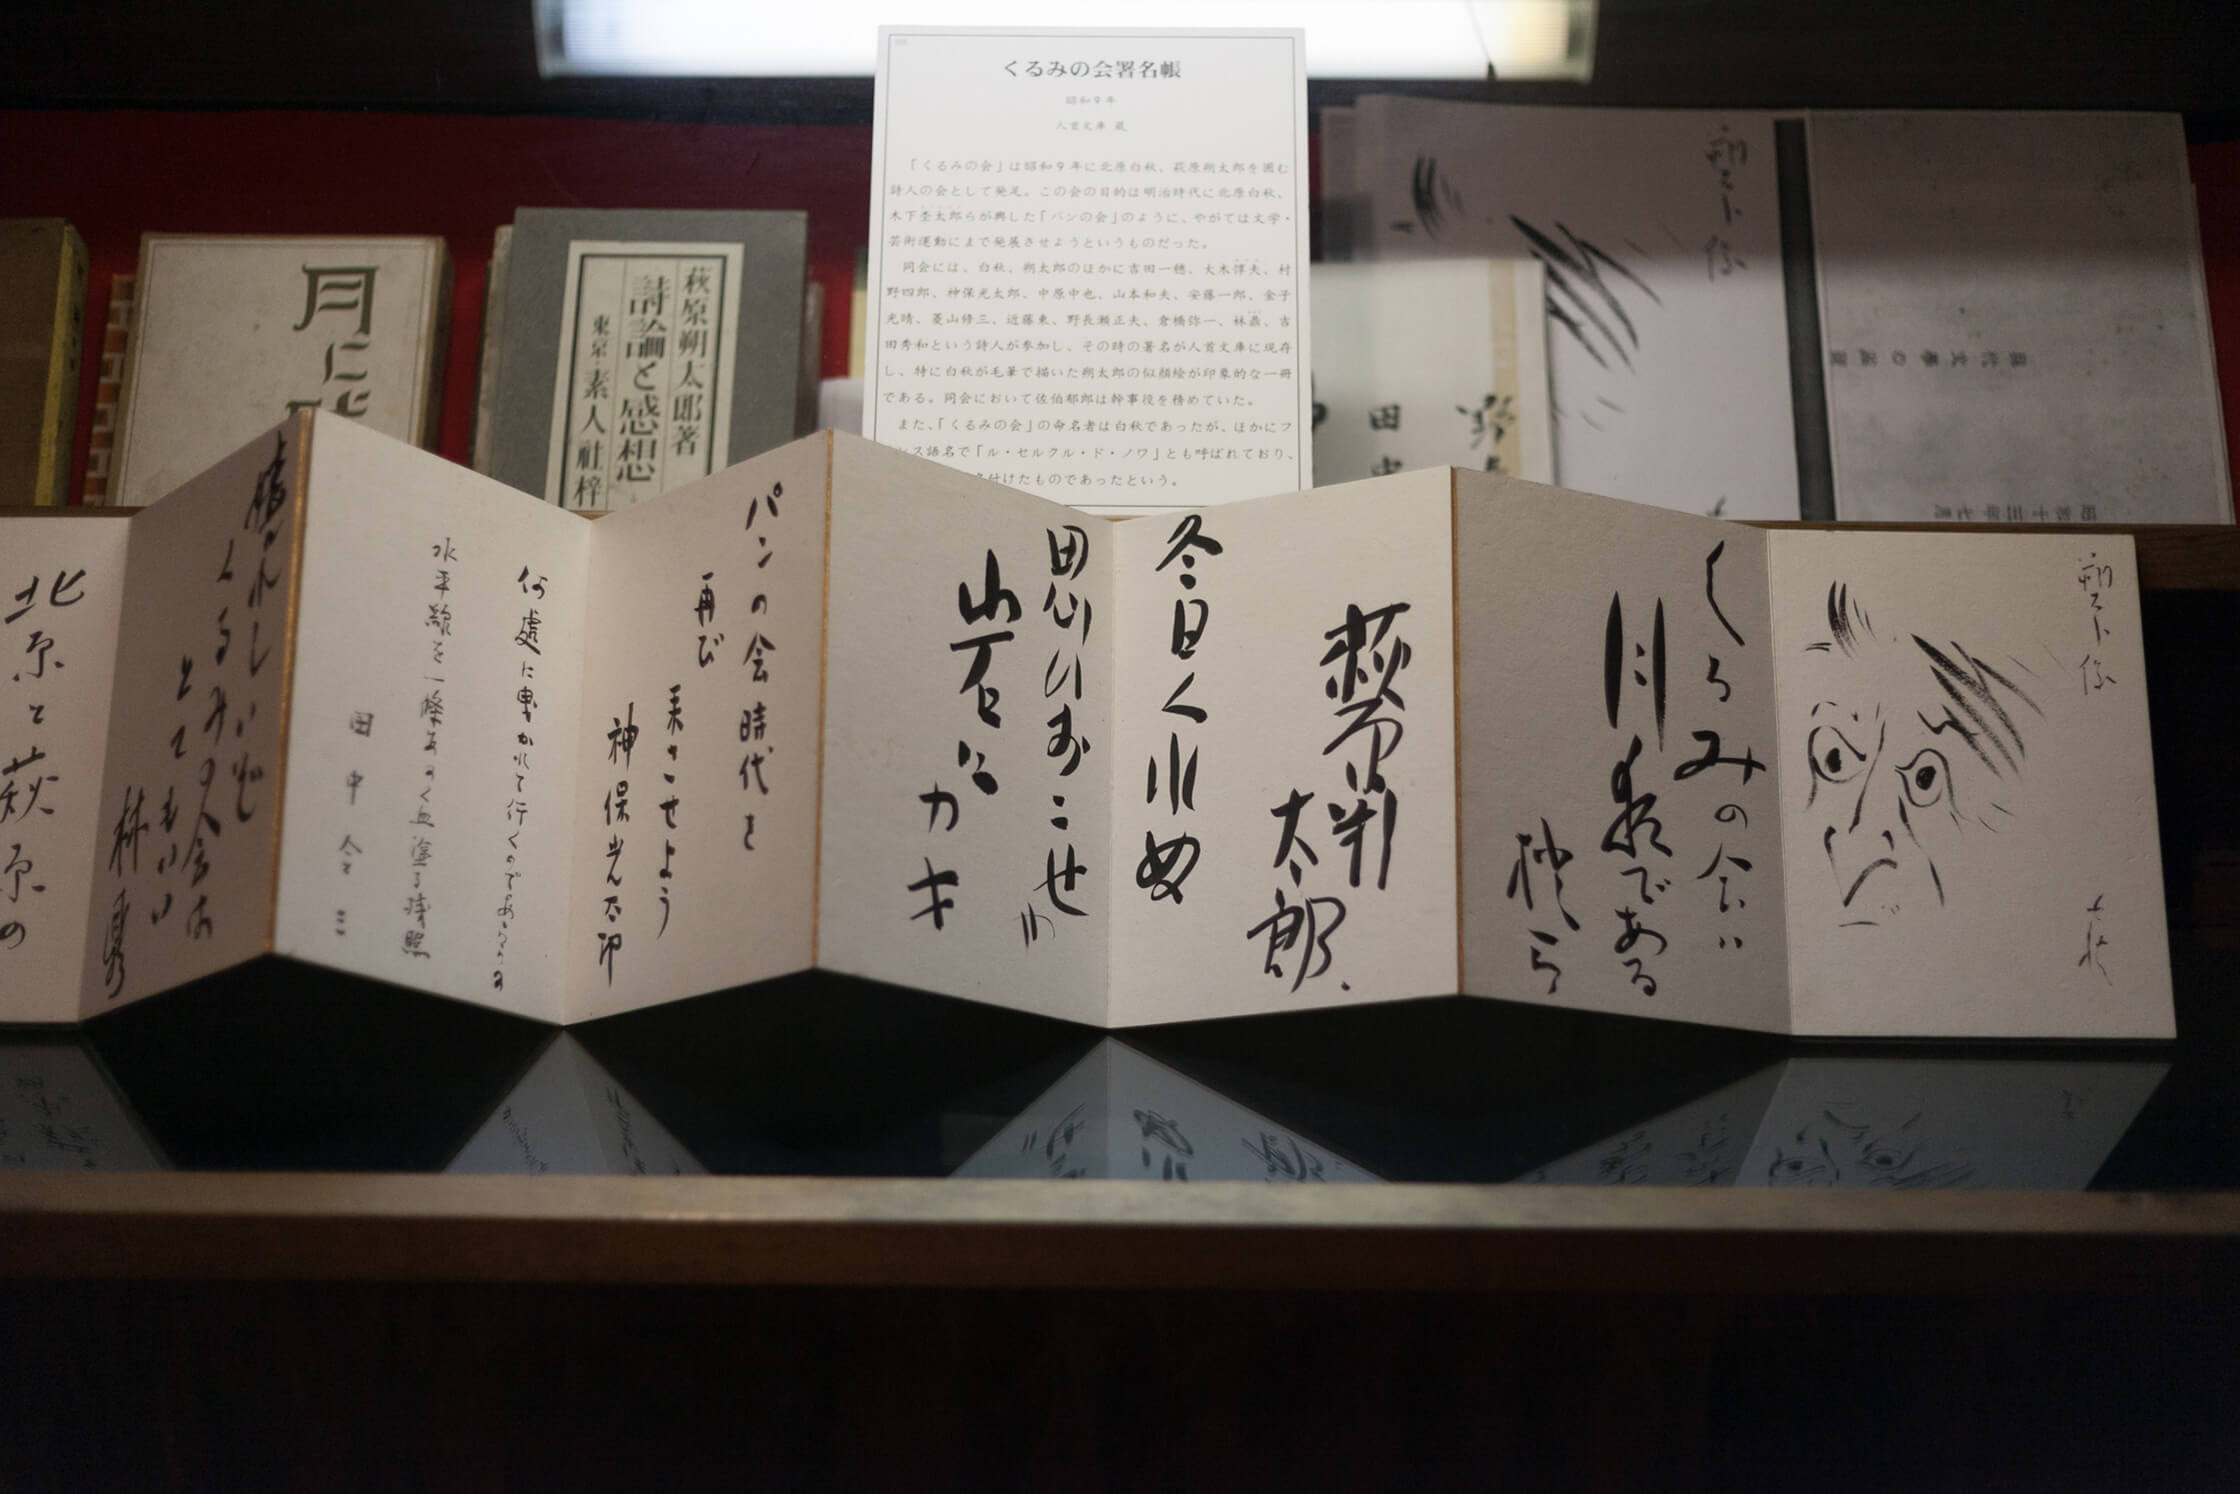 くるみの会署名帳
昭和9年
人首文庫 蔵
「くるみの会」は昭和9年に北原白秋、萩原朔太郎を囲む
詩人の会として発足。この会の目的は明治時代に北原白秋、
木下杢太郎らが興した「パンの会」のように、やがては文学・
芸術運動にまで発展させようというものだった。
同会には、白秋、朔太郎のほかに吉田一穂、大木惇夫、村
野四郎、神保光太郎、中原中也、山本和夫、安藤一郎、金子
光晴、菱山修三、近藤東、野長瀬正夫、倉橋弥一、林髞、吉
田秀和という詩人が参加し、その時の署名が人首文庫に現存
し、特に白秋が毛筆で描いた朔太郎の似顔絵が印象的な一冊
である。同会において佐伯郁郎は幹事役を務めていた。
また、「くるみの会」の命名者は白秋であったが、ほかにフ
ンス語名で「ル・セルクル・ド・ノワ」とも呼ばれており、
付けたものであったという。
月に
萩原朔太郎著
詩論と感想
東京・素人社梓
朔太郎像
くるみの会は
である
萩原朔
太郎
パンの会時代を
再び
来させよう
神保光太郎
何處に曳かれて行くのであらうか
水平線を一條あかく血塗る残照
田中令三
くるみの会は
とてもいい
林髞
北原と萩原の